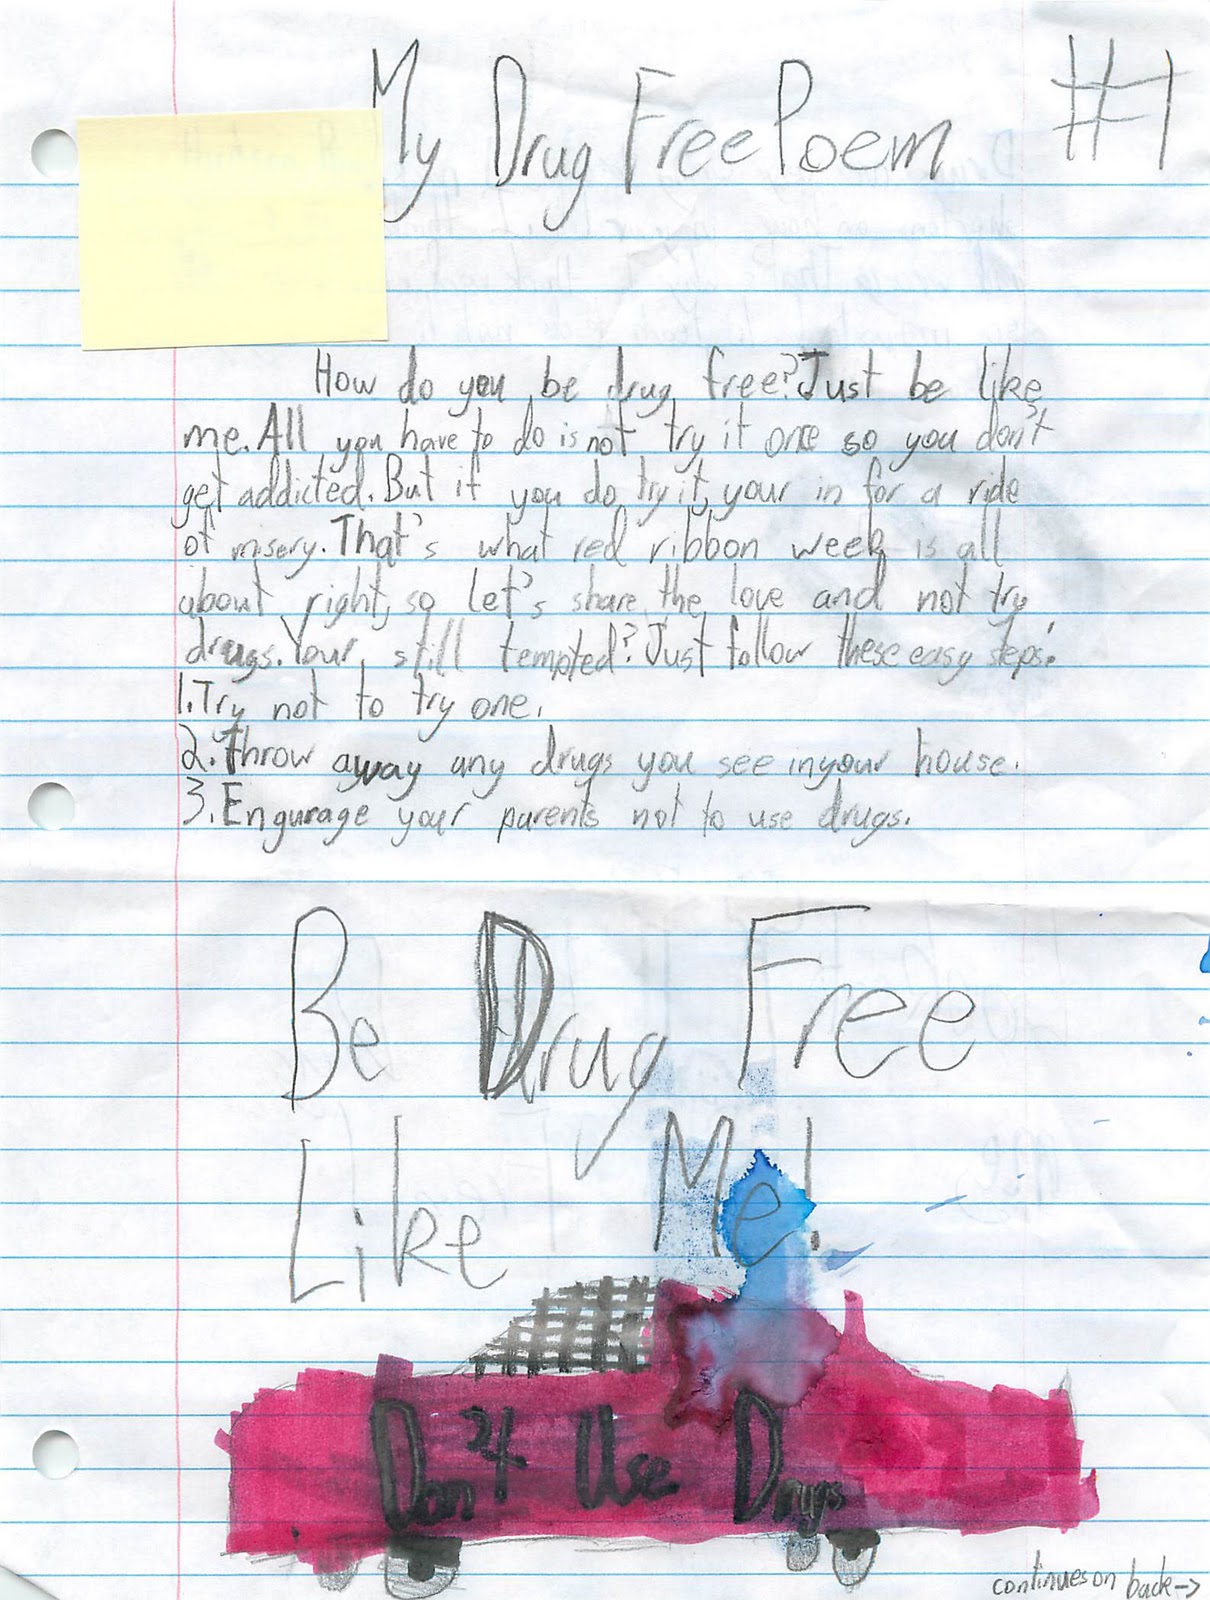 My Drug Free Poem #1
How do you be drug free? Just be like
me. All you have to do is not try it once so you don't
get addicted. But if you do try it, your in for a ride
of misery. That's what red ribbon week is all
about right, so Let's share the love and not try
drugs. Your still tempted? Just follow these easy steps:
1. Try not to try one.
2. Throw away any drugs you see in your house.
3. Engurage your parents not to use drugs.
Be Drug Free
Like Me!
Don't Use Drugs
continues on back->